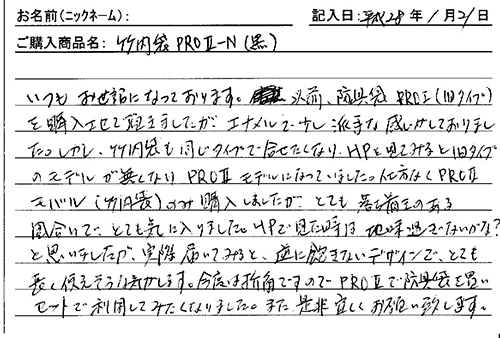 お名前(ニックネーム): 記入日:平成28年1月21日
ご購入商品名: 竹刀袋PROⅡ-N(黒)
いつもお世話になっております。以前、防具袋PROⅠ(旧タイプ)
を購入させて頂きましたが、エナメルで少し派手な感じがしておりまし
た。しかし、竹刀袋も同じタイプで合せたくなり、HPを見てみると旧タイプ
のモデルが無くなり PROⅡモデルになっていました。仕方なくPROⅡ
モデル(竹刀袋)のみ購入しましたが、とても落ち着きのある
風合いで、とても気に入りました。HPで見た時は、地味過ぎないかな?
と思いましたが、実際届いてみると、逆に飽きないデザインで、とても
長く使えそうな気がします。今度は折角ですのでPROⅡで防具袋を買い
セットで利用してみたくなりました。また是非宜しくお願い致します。